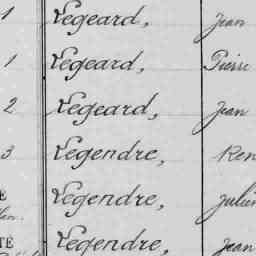 1 Legeard, Jean
1 Legeard, Pierre
2 Legeard, Jean
3 Legendre,
Legendre,
TÉ Legendre, Jean